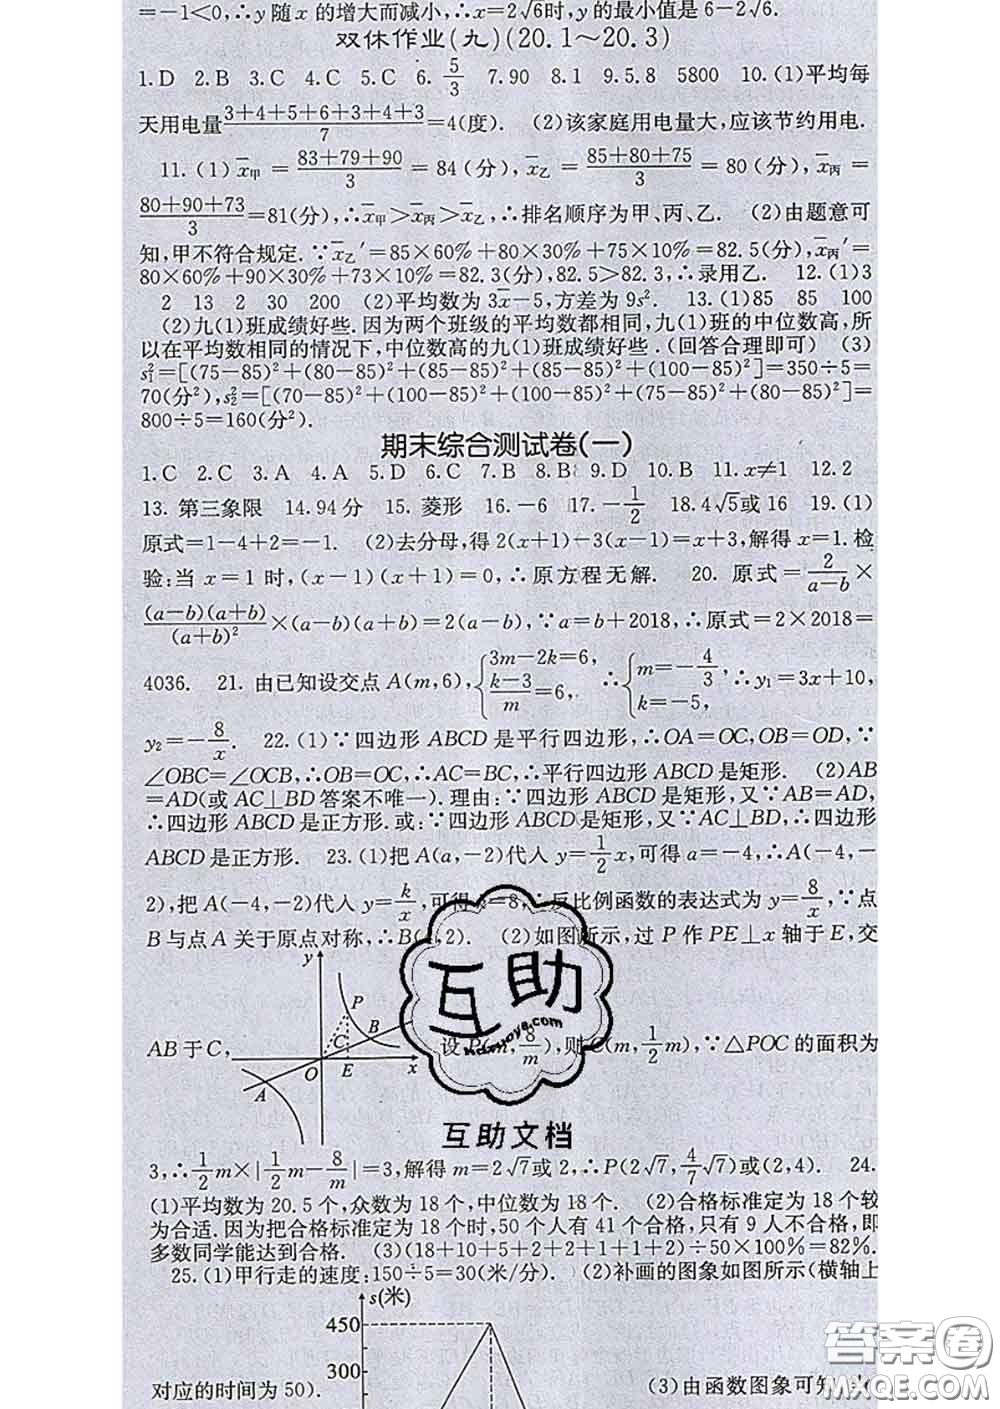 =－1<0,∴y 随 x 的增大而减小,∴x=2√6时,y 的最小值是 6－2√6.
双休作业(九)(20.1～20.3)
1.D 2.B 3.C 4.C 5.C 6. 5/3 7.90 8.1 9.5.8 5800 10.(1)平均每
天用电量 (3+4+5+6+3+4+3)/7 =4(度). (2)该家庭用电量大,应该节约用电.
11.(1) x̄甲 = (83+79+90)/3 = 84(分), x̄乙 = (85+80+75)/3 = 80(分), x̄丙 =
(80+90+73)/3 =81(分),∴x̄甲>x̄丙>x̄乙,∴排名顺序为甲、丙、乙. (2)由题意可
知,甲不符合规定.∵x̄乙′=85×60%+80×30%+75×10%=82.5(分),x̄丙′=
80×60%+90×30%+73×10%=82.3(分),82.5>82.3,∴录用乙. 12.(1)3
2 13 2 30 200 (2)平均数为 3x̄－5,方差为 9s². 13.(1)85 85 100
(2)九(1)班成绩好些.因为两个班级的平均数都相同,九(1)班的中位数高,所
以在平均数相同的情况下,中位数高的九(1)班成绩好些.(回答合理即可) (3)
s₁²=[(75－85)²+(80－85)²+(85－85)²+(85－85)²+(100－85)²]=350÷5=
70(分²),s₂²=[(70－85)²+(100－85)²+(100－85)²+(75－85)²+(80－85)²]=
800÷5=160(分²).
期末综合测试卷(一)
1.C 2.C 3.A 4.A 5.D 6.C 7.B 8.B 9.D 10.B 11.x≠1 12.2
13.第三象限 14.94分 15.菱形 16.－6 17.－1/2 18.4√5或 16 19.(1)
原式=1－4+2=－1. (2)去分母,得 2(x+1)－3(x－1)=x+3,解得 x=1.检
验:当 x=1 时,(x－1)(x+1)=0,∴原方程无解. 20.原式= 2/(a－b) ×
(a－b)(a+b)/(a+b)² ×(a－b)(a+b)=2(a－b),∵a=b+2018,∴原式=2×2018=
4036. 21.由已知设交点 A(m,6),{3m－2k=6, (k－3)/m=6, ∴{m=－4/3, k=－5, ∴y₁=3x+10,
y₂=－8/x. 22.(1)∵四边形 ABCD 是平行四边形,∴OA=OC,OB=OD,∵
∠OBC=∠OCB,∴OB=OC,∴AC=BC,∴平行四边形 ABCD 是矩形. (2)AB
=AD(或 AC⊥BD 答案不唯一).理由:∵四边形 ABCD 是矩形,又∵AB=AD,
∴四边形 ABCD 是正方形.或:∵四边形 ABCD 是矩形,又∵AC⊥BD,∴四边形
ABCD 是正方形. 23.(1)把 A(a,－2)代入 y=1/2 x,可得 a=－4,∴A(－4,－
2),把 A(－4,－2)代入 y=k/x,可得 k=8,∴反比例函数的表达式为 y=8/x,∵点
B 与点 A 关于原点对称,∴B(4,2). (2)如图所示,过 P 作 PE⊥x 轴于 E,交
y
P
B
C
AB 于 C, 设 P(m,8/m),则 C(m,1/2 m),∵△POC 的面积为
O E x
A
互助
互助文档
3,∴1/2 m×|1/2 m－8/m|=3,解得 m=2√7或 2,∴P(2√7,4/7√7)或(2,4). 24.
(1)平均数为 20.5 个,众数为 18 个,中位数为 18 个. (2)合格标准定为 18 个较
为合适.因为把合格标准定为 18 个时,50 个人有 41 个合格,只有 9 人不合格,即
多数同学能达到合格. (3)(18+10+5+2+2+1+1+2)÷50×100%=82%.
25.(1)甲行走的速度:150÷5=30(米/分). (2)补画的图象如图所示(横轴上
s(米)
450
300
对应的时间为 50). (3)由函数图象可知,
答案圈
MXQE.COM